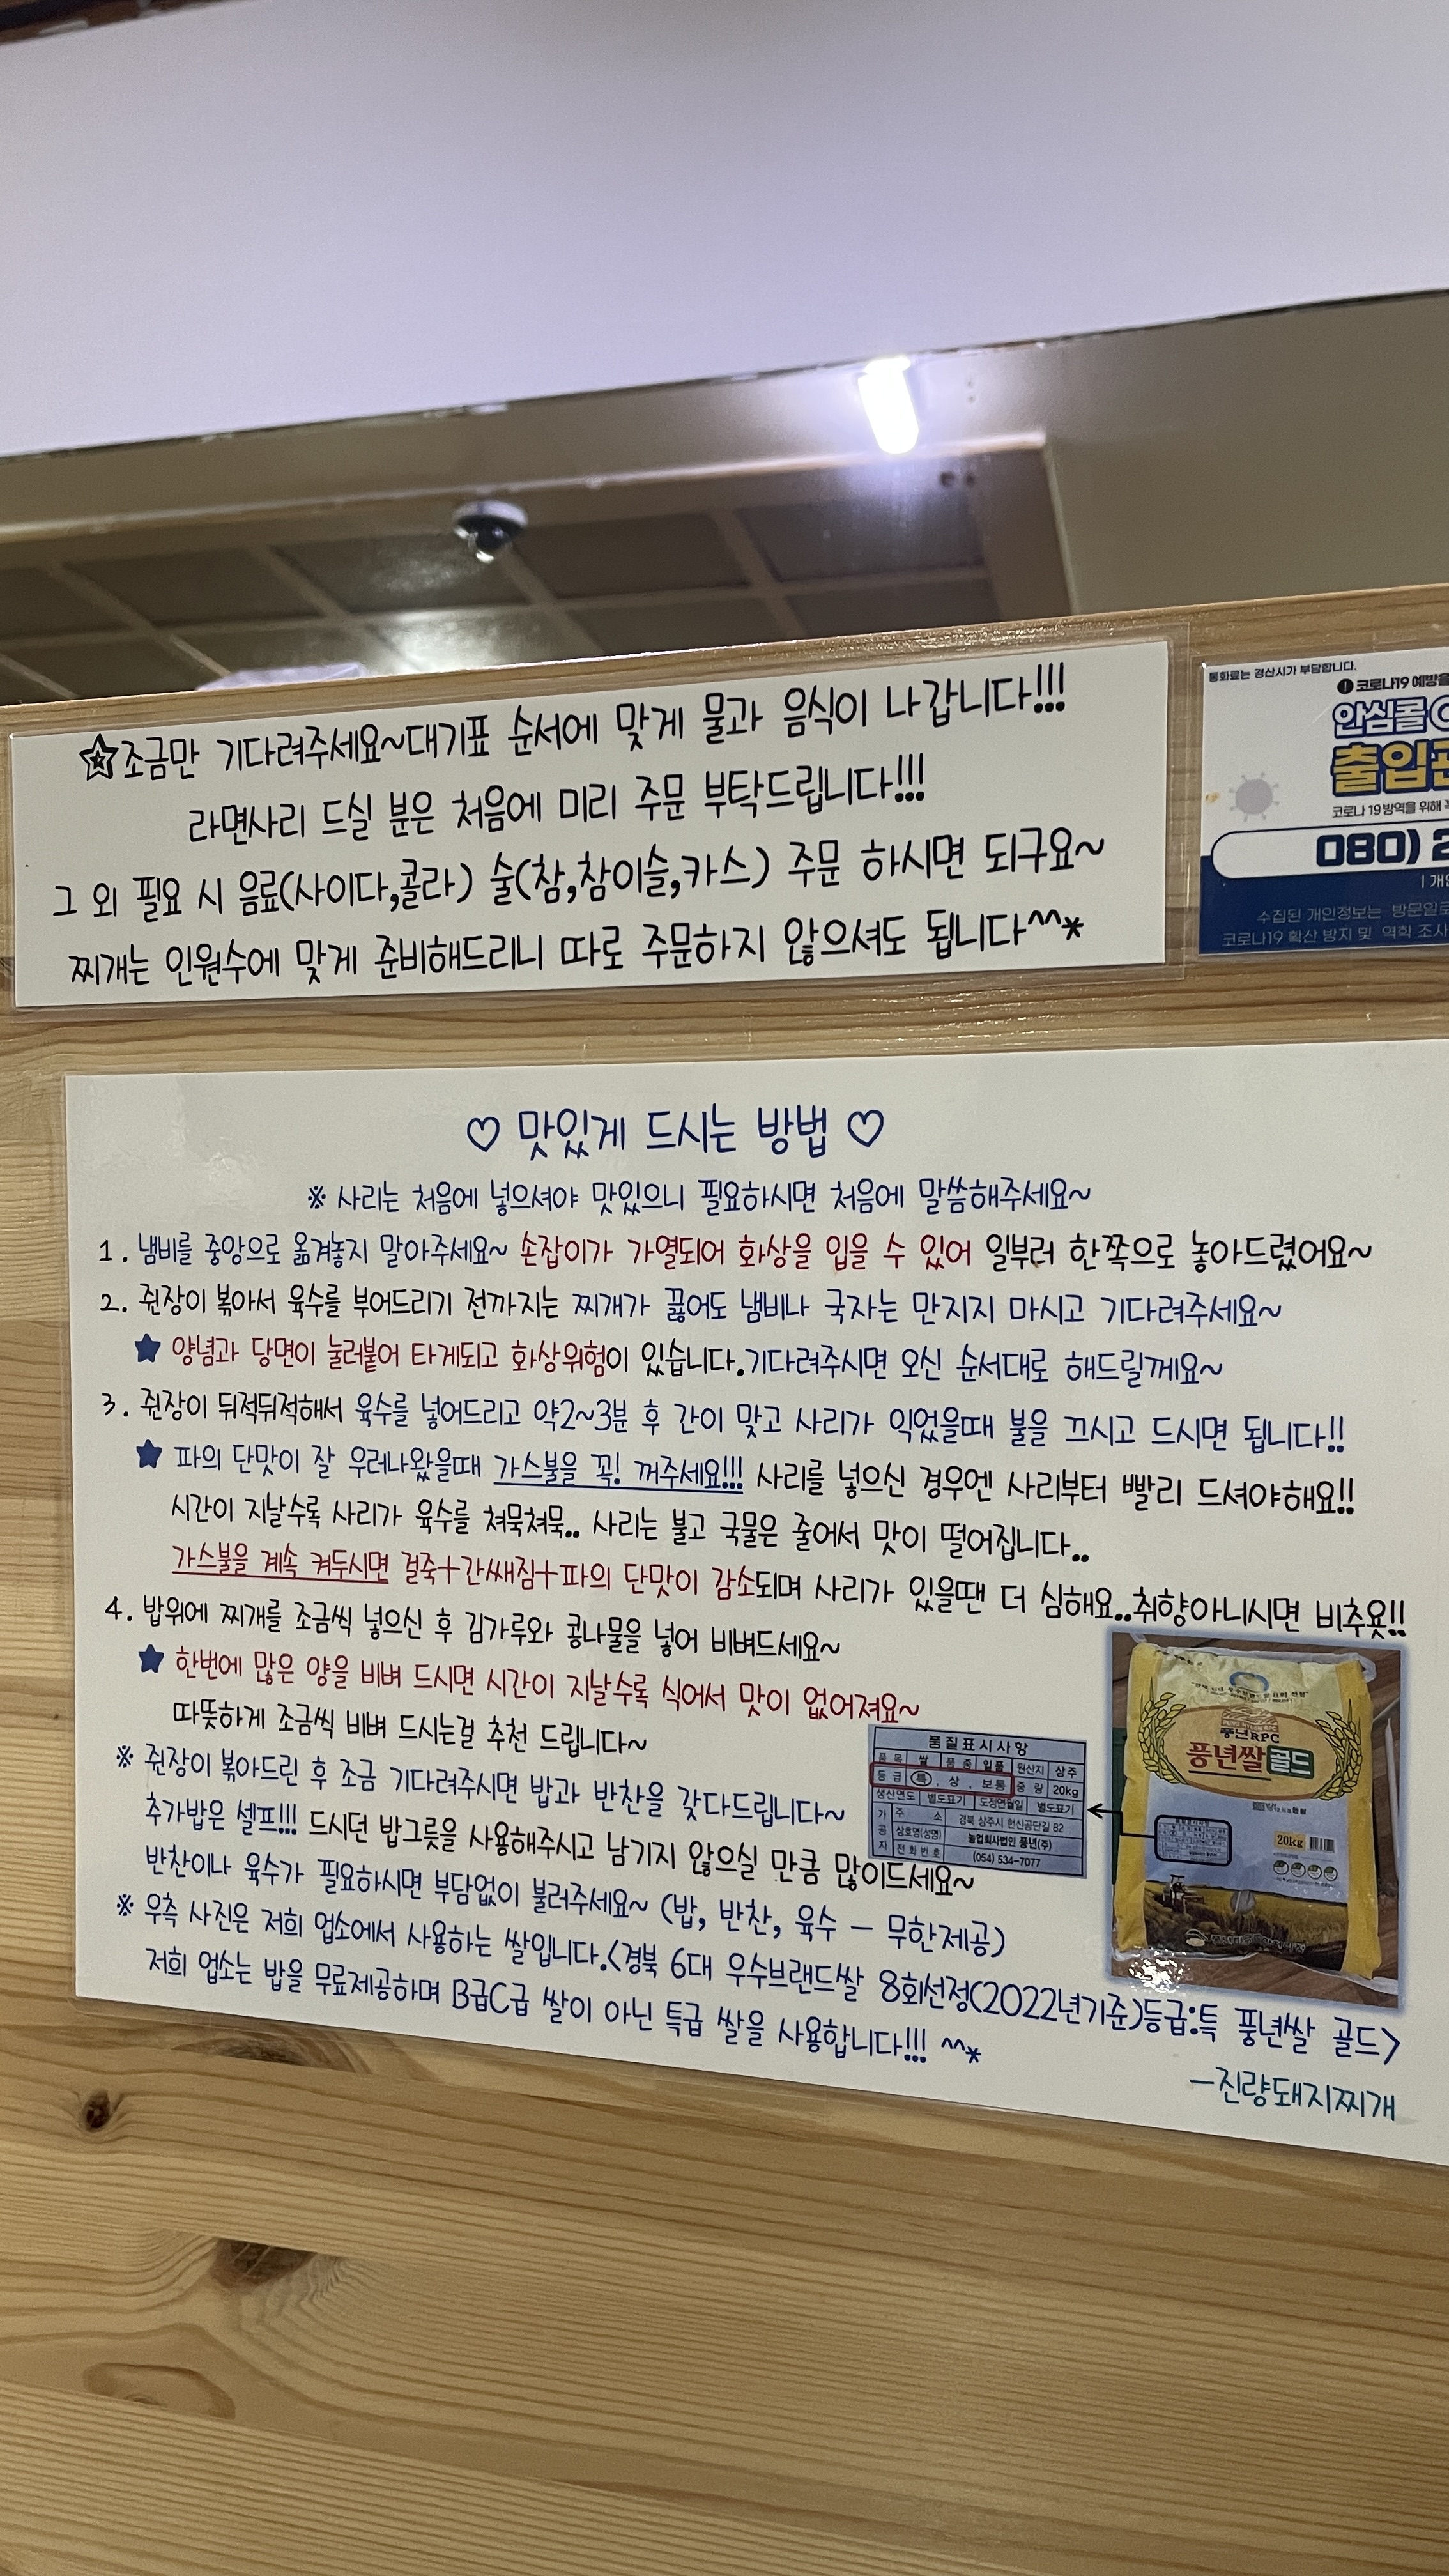 ☆조금만 기다려주세요~대기표 순서에 맞게 물과 음식이 나갑니다!!!
라면사리 드실 분은 처음에 미리 주문 부탁드립니다!!!
그 외 필요 시 음료(사이다,콜라) 술(참,참이슬,카스) 주문 하시면 되구요~
찌개는 인원수에 맞게 준비해드리니 따로 주문하지 않으셔도 됩니다^^*
통화료는 경산시가 부담합니다.
코로나19 예방을
안심콜
출입관
코로나 19 방역을 위해
080) 2
개인
수집된 개인정보는 방문일로
코로나19 확산 방지 및 역학 조사
♡ 맛있게 드시는 방법 ♡
※ 사리는 처음에 넣으셔야 맛있으니 필요하시면 처음에 말씀해주세요~
1. 냄비를 중앙으로 옮겨놓지 말아주세요~ 손잡이가 가열되어 화상을 입을 수 있어 일부러 한쪽으로 놓아드렸어요~
2. 쥔장이 볶아서 육수를 부어드리기 전까지는 찌개가 끓어도 냄비나 국자는 만지지 마시고 기다려주세요~
★ 양념과 당면이 눌러붙어 타게되고 화상위험이 있습니다.기다려주시면 오신 순서대로 해드릴께요~
3. 쥔장이 뒤적뒤적해서 육수를 넣어드리고 약2~3분 후 간이 맞고 사리가 익었을때 불을 끄시고 드시면 됩니다!!
★ 파의 단맛이 잘 우러나왔을때 가스불을 꼭! 꺼주세요!!! 사리를 넣으신 경우엔 사리부터 빨리 드셔야해요!!
시간이 지날수록 사리가 육수를 쳐묵쳐묵.. 사리는 불고 국물은 줄어서 맛이 떨어집니다..
가스불을 계속 켜두시면 걸죽+간쌔짐+파의 단맛이 감소되며 사리가 있을땐 더 심해요..취향아니시면 비추욧!!
4. 밥위에 찌개를 조금씩 넣으신 후 김가루와 콩나물을 넣어 비벼드세요~
★ 한번에 많은 양을 비벼 드시면 시간이 지날수록 식어서 맛이 없어져요~
따뜻하게 조금씩 비벼 드시는걸 추천 드립니다~
※ 쥔장이 볶아드린 후 조금 기다려주시면 밥과 반찬을 갖다드립니다~
추가밥은 셀프!!! 드시던 밥그릇을 사용해주시고 남기지 않으실 만큼 많이드세요~
반찬이나 육수가 필요하시면 부담없이 불러주세요~ (밥, 반찬, 육수 - 무한제공)
※ 우측 사진은 저희 업소에서 사용하는 쌀입니다.<경북 6대 우수브랜드쌀 8회선정(2022년기준)등급:특 풍년쌀 골드>
저희 업소는 밥을 무료제공하며 B급C급 쌀이 아닌 특급 쌀을 사용합니다!!! ^^*
-진량돼지찌개
품질표시사항
품 목 쌀 품 종 일품 원산지 상주
등 급 특, 상, 보통 중 량 20kg
생산연도 별도표기 도정연월일 별도표기
가공자 주 소 경북 상주시 헌신공단길 82
상호명(성명) 농업회사법인 풍년(주)
전화번호 (054) 534-7077
풍년RPC
풍년쌀 골드
20kg